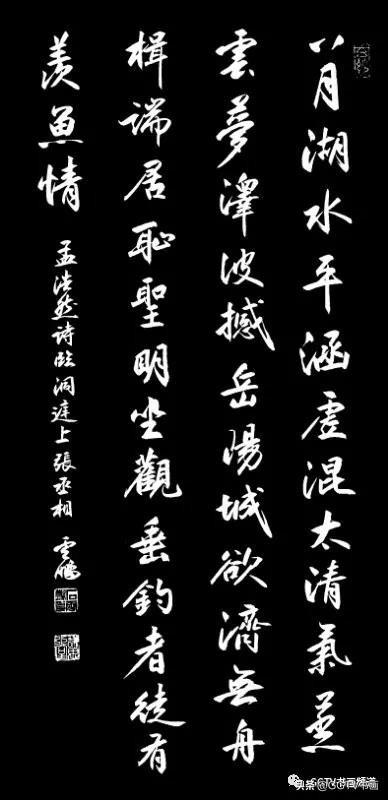 八月湖水平涵虛混太清氣蒸
雲夢澤波撼岳陽城欲濟無舟
楫端居恥聖明坐觀垂釣者徒有
羨魚情
孟浩然詩臨洞庭上張丞相 雲鵬
CCTV书画频道